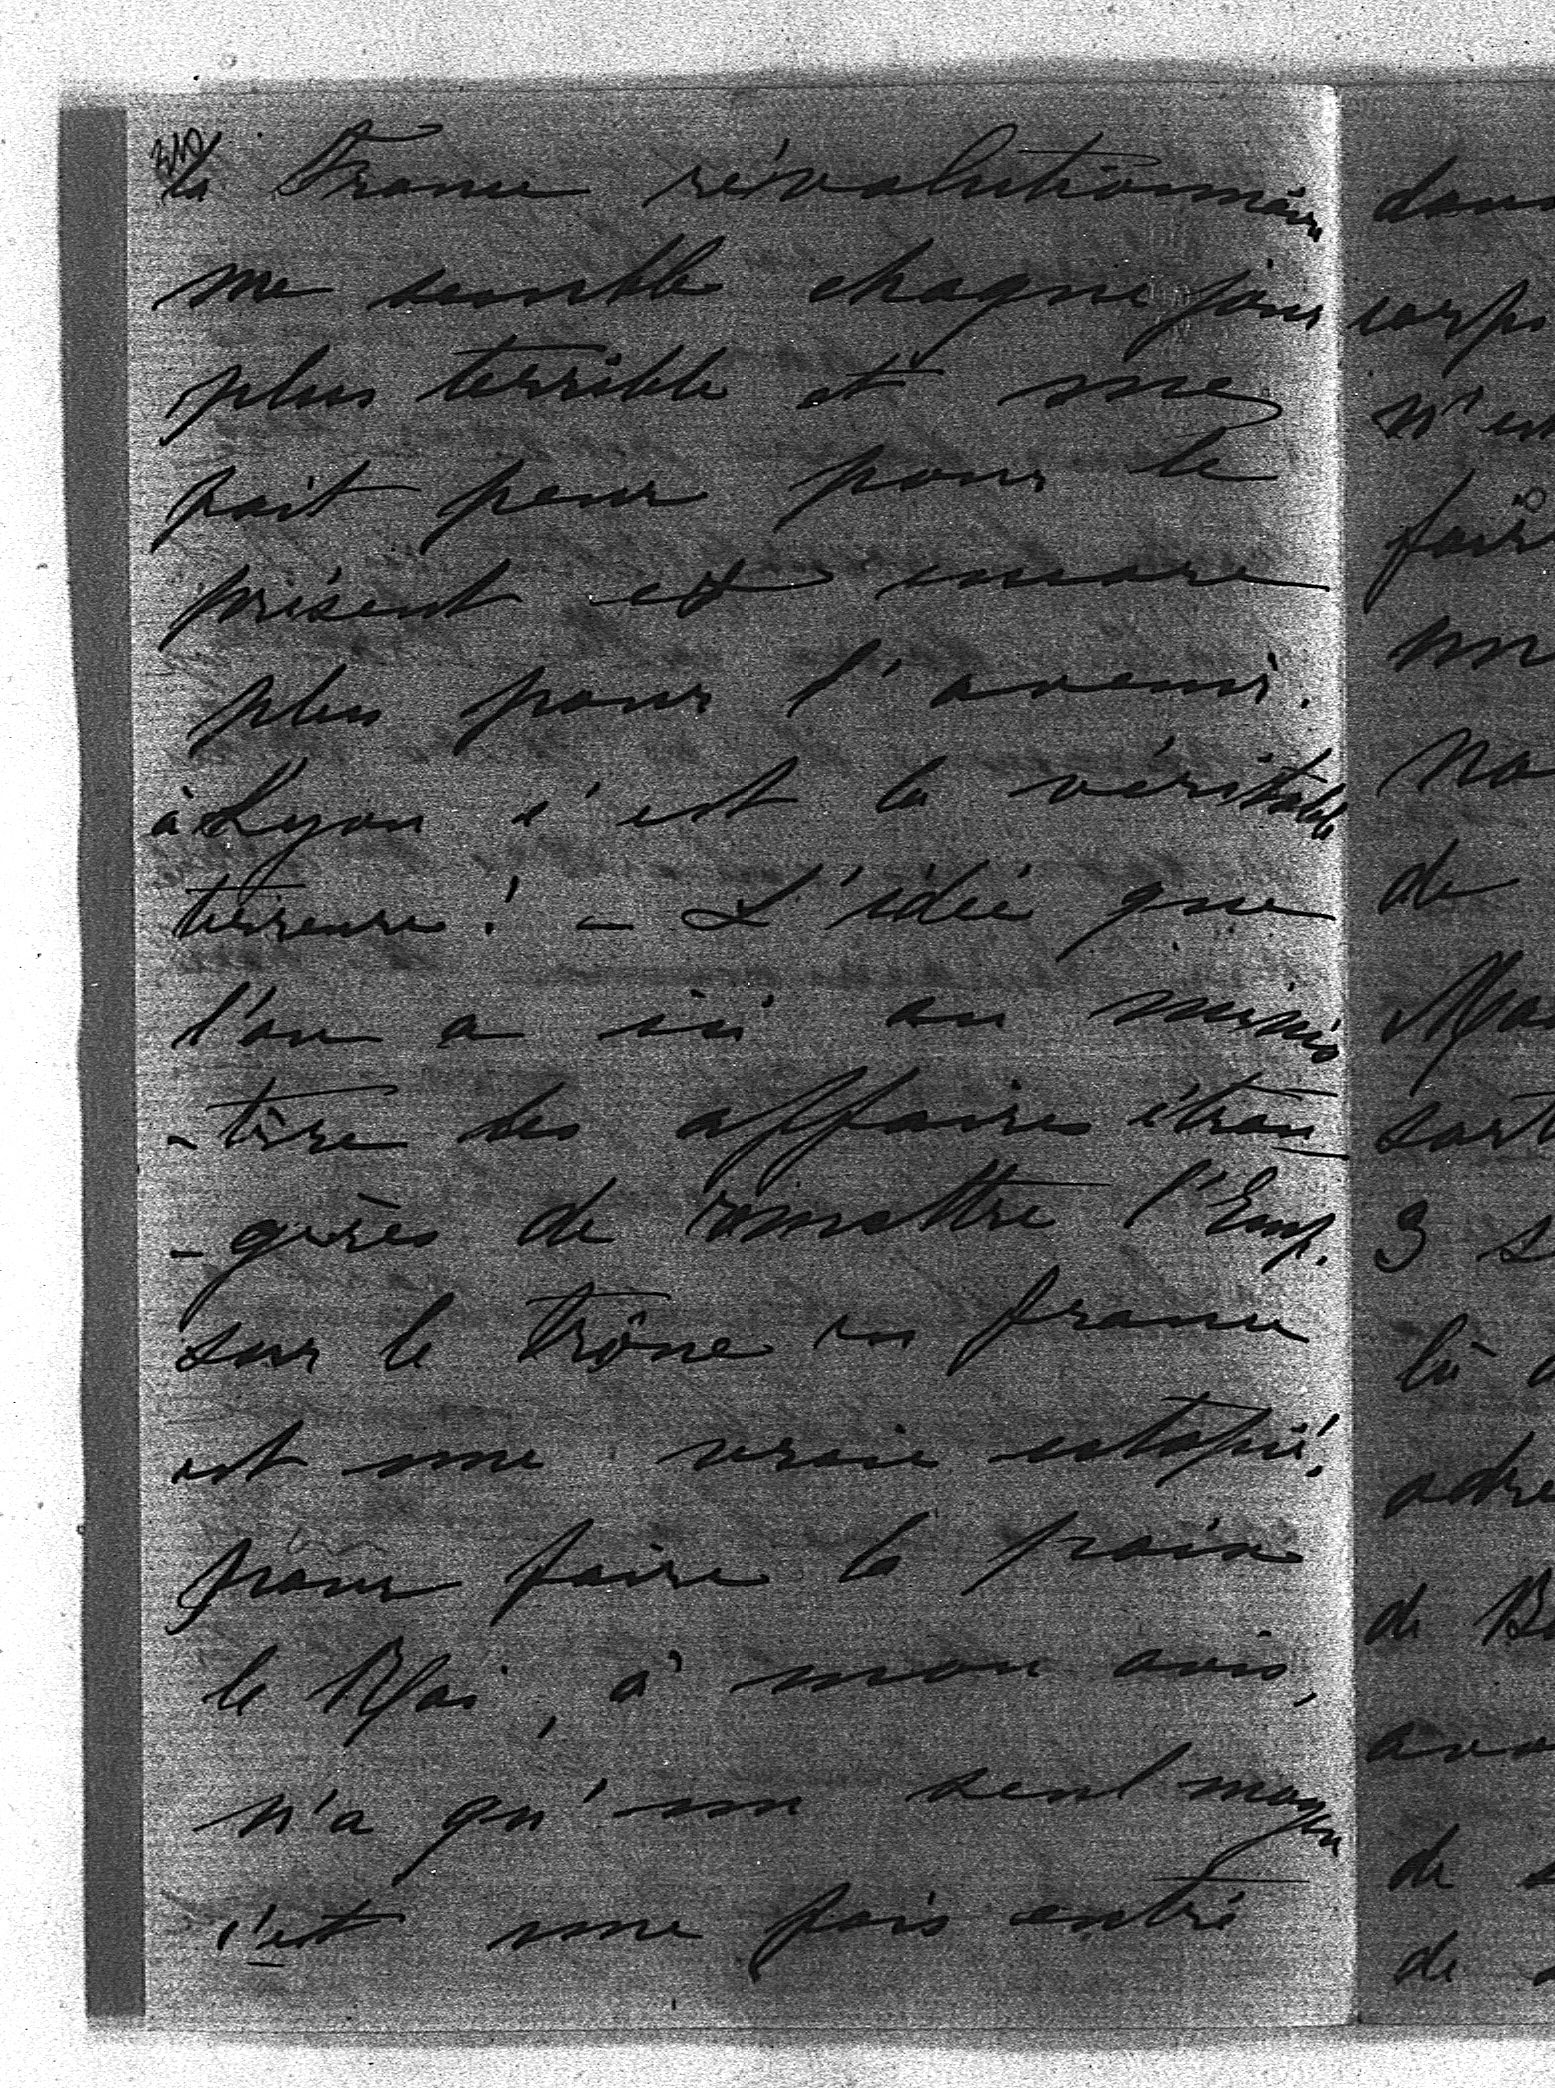 340
la France révolutionnaire
me semble chaque jour
plus terrible et me
fait peur pour le
présent et encore
plus pour l'avenir.
à Lyon c'est la véritable
terreure! - L'idée que
l'on a ici au minis
-tère des affaires étran
-gères de remettre l'Emp.
sur le trône en france
est une vraie utopie!
pour faire la paix
le Roi, à mon avis,
n'a qu'un seul moyen
c'est une fois entré
dans
corps
n'est
faire
No
de
sort
3 s
là
adre
de B
avo
de s
de